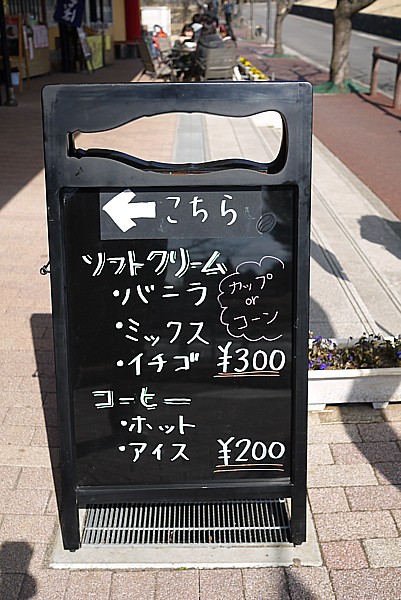 こちら
ソフトクリーム
・バニラ
・ミックス
・イチゴ ¥300
カップ
or
コーン
コーヒー
・ホット
・アイス ¥200